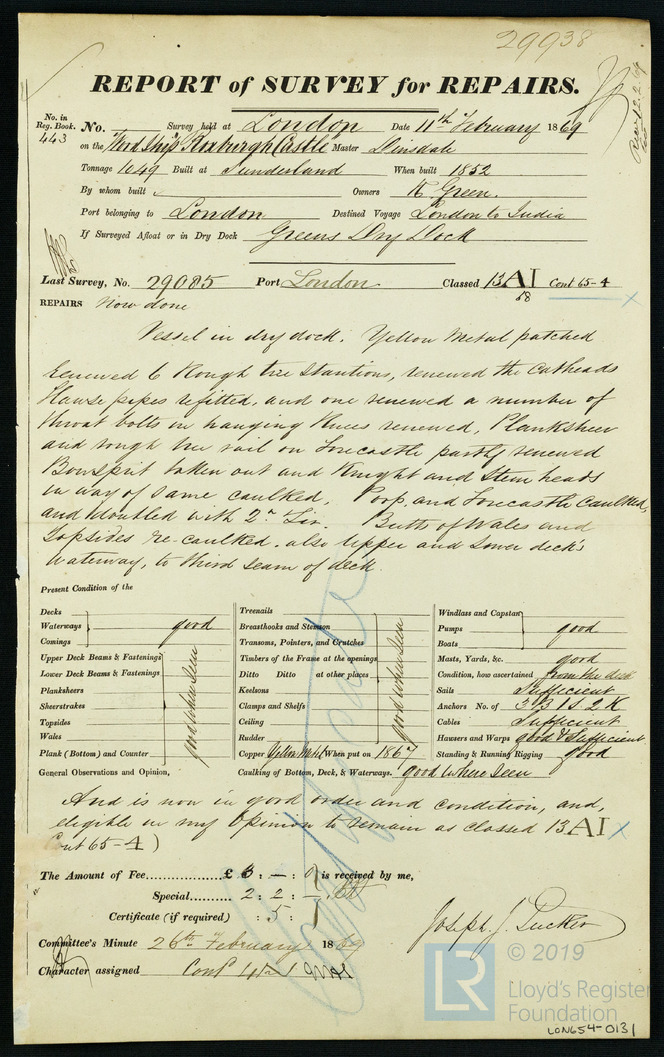 29938
REPORT of SURVEY for REPAIRS.
No. in Reg. Book. 443
No. Survey held at London Date 11th February 1869
on the Wood Ship Roxburgh Castle Master Dinsdale
Tonnage 1049 Built at Sunderland When built 1852
By whom built Owners R Green.
Port belonging to London Destined Voyage London to India
If Surveyed Afloat or in Dry Dock Greens Dry Dock
Last Survey, No. 29085 Port London Classed 13 A1 Cont 65-4
68
REPAIRS Now done
Vessel in dry dock. Yellow Metal patched
renewed 6 Rough tree Stantions, renewed the Catheads
Hawse pipes refitted, and one renewed a number of
throat bolts in hanging Knees renewed, Planksheer
and rough tree rail on Forecastle partly renewed
Bowsprit taken out and Knight and Stem heads
in way of same caulked. Poop and Forecastle caulked,
and doubled with 2in Fir. Butts of Wales and
Topsides re-caulked. also Upper and Lower deck's
waterway, to third seam of deck.
Present Condition of the
Decks
Waterways good
Comings
Upper Deck Beams & Fastenings
Lower Deck Beams & Fastenings
Planksheers
Sheerstrakes
Topsides
Wales
Plank (Bottom) and Counter
good when seen
Treenails
Breasthooks and Stemson
Transoms, Pointers, and Crutches
Timbers of the Frame at the openings
Ditto Ditto at other places
Keelsons
Clamps and Shelfs
Ceiling
Rudder
good when seen
Copper Yellow Metal When put on 1867
Windlass and Capstan
Pumps good
Boats
Masts, Yards, &c. good
Condition, how ascertained from the deck
Sails Sufficient
Anchors No. of 3 B 1 S 2 K
Cables Sufficient
Hawsers and Warps good & Sufficient
Standing & Running Rigging good
General Observations and Opinion, Caulking of Bottom, Deck, & Waterways. good where seen
And is now in good order and condition, and,
eligible in my Opinion to remain as classed 13 A1
Cont 65-4)
The Amount of Fee £ : — : is received by me,
Special 2 : 2 :
Certificate (if required) : 5 :
Joseph J. Tucker
Committee's Minute 26th February 1869
Character assigned
LR
© 2019
Lloyd's Register
Foundation
LON654-0131